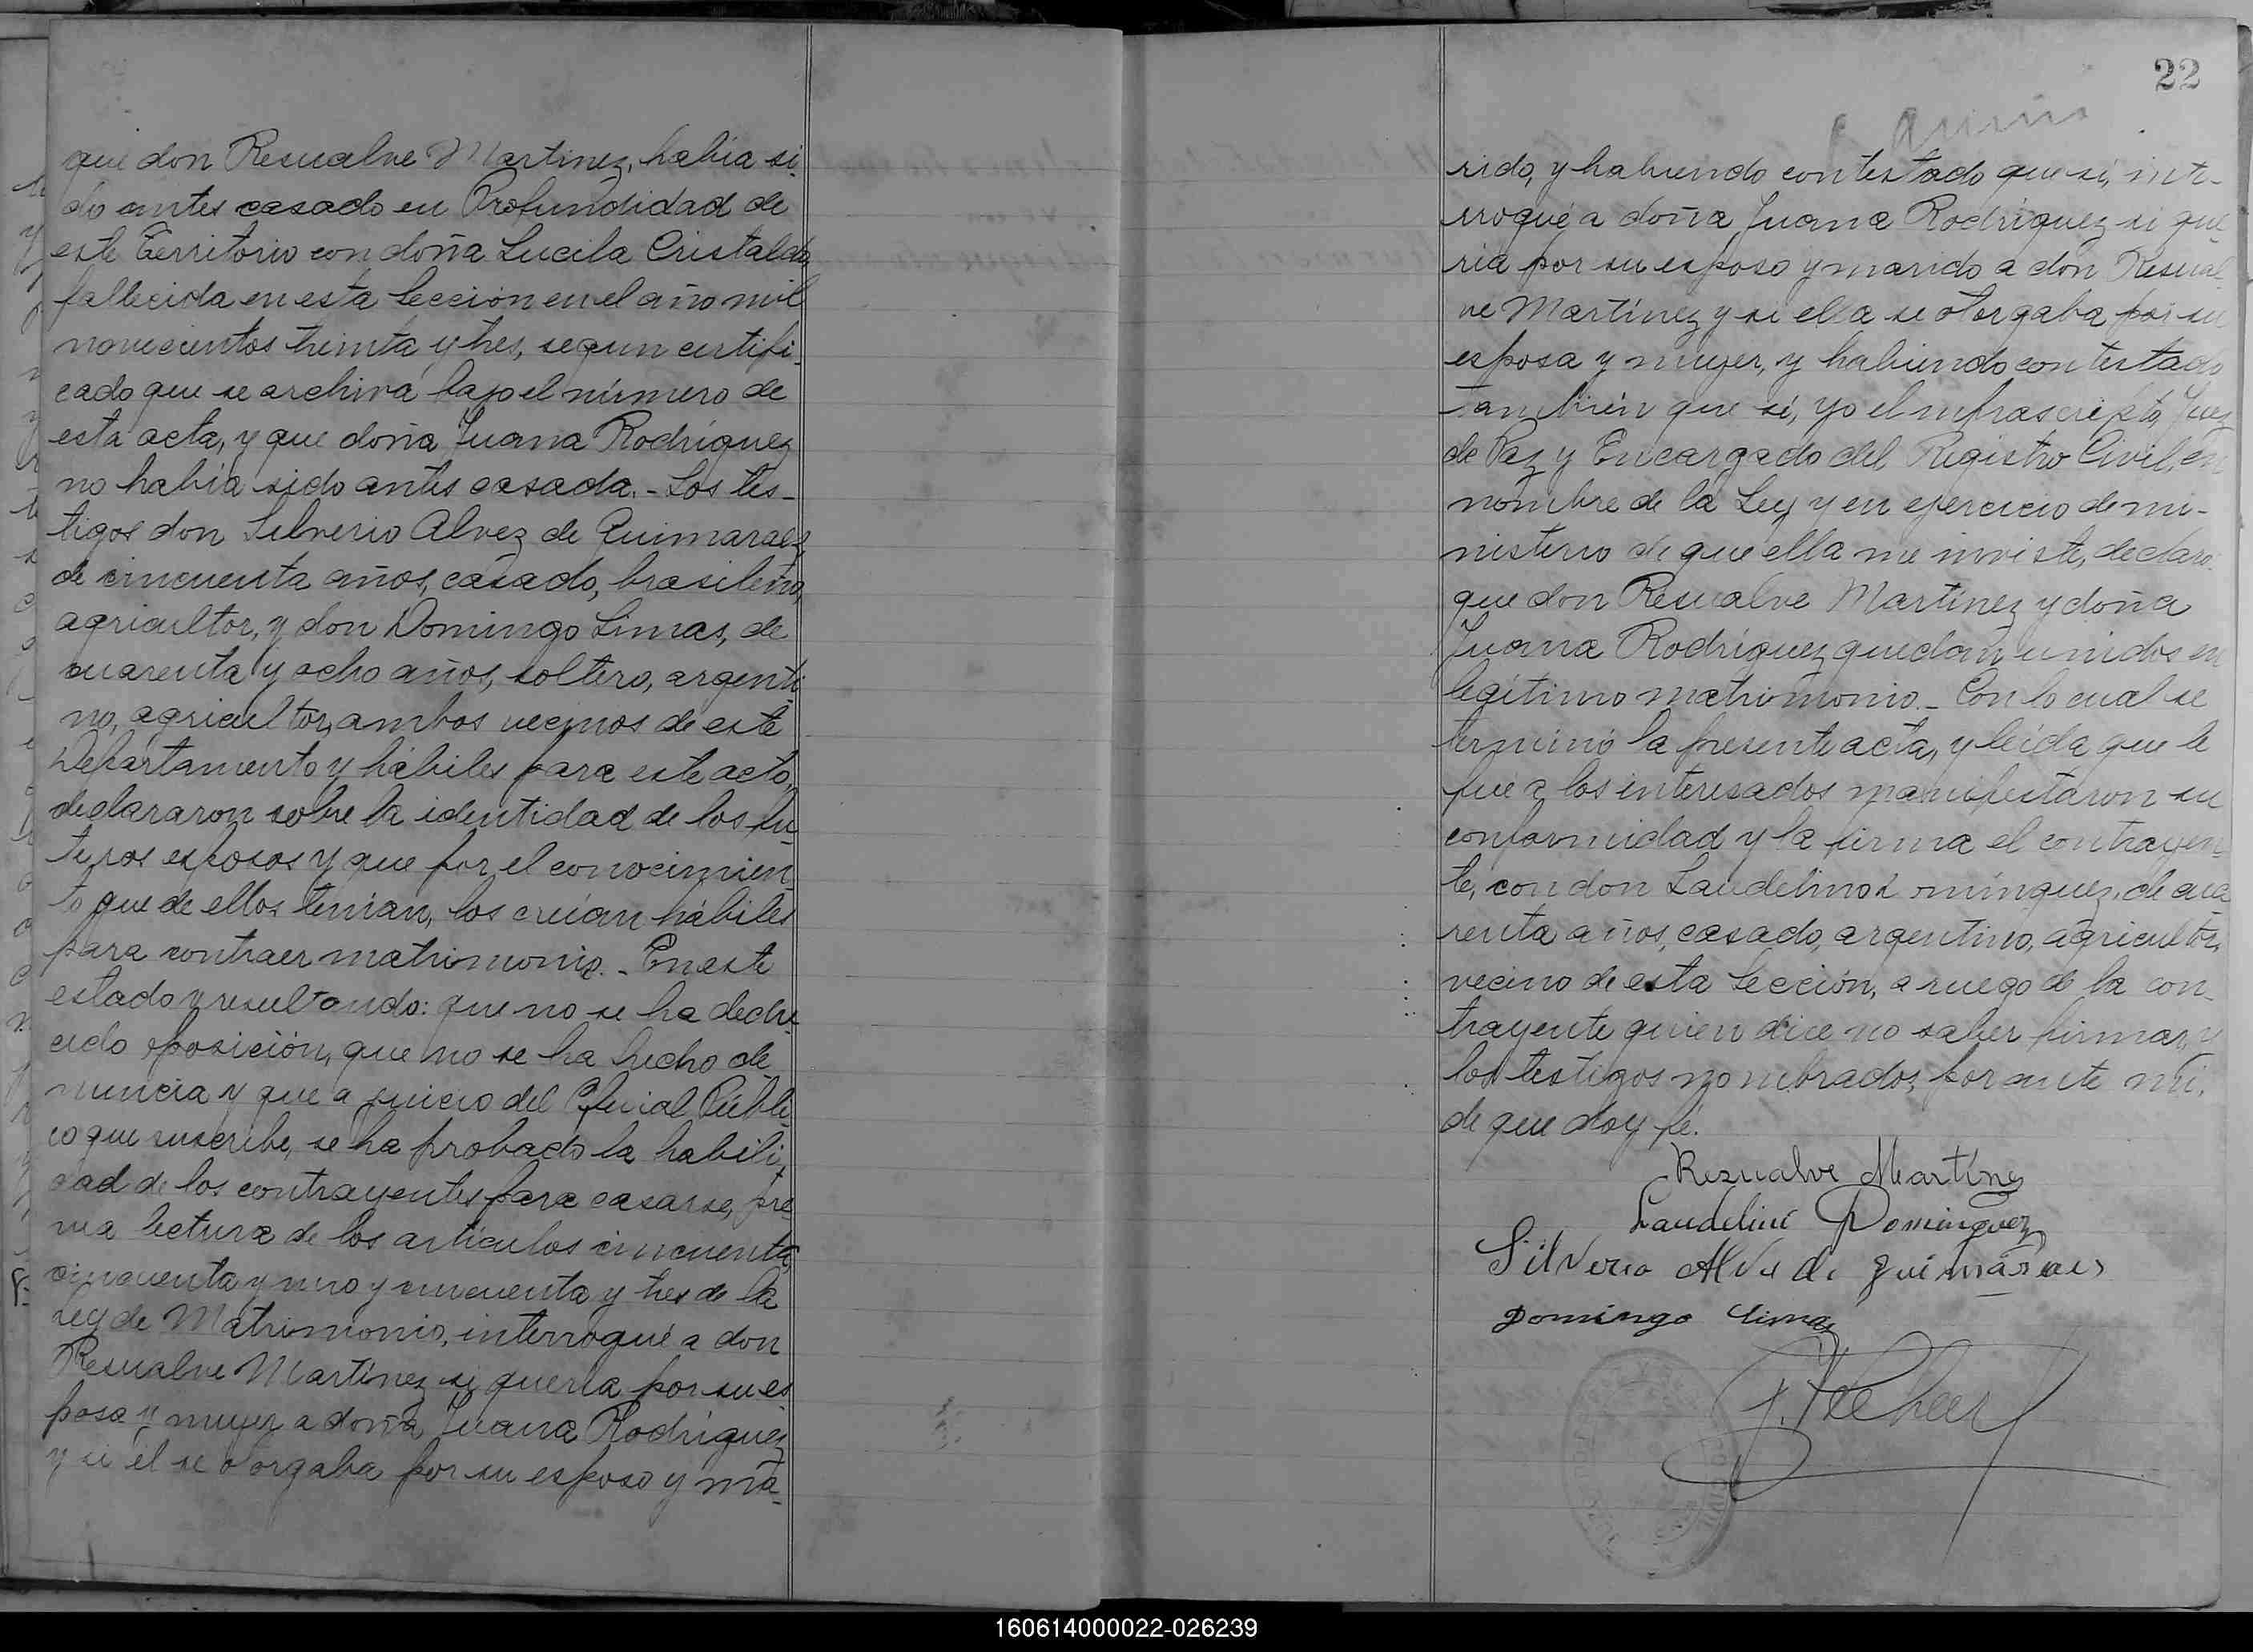 que don Resualve Martinez, habia si-
do antes casado en Profundidad de
este Territorio con doña Lucila Cristaldo,
fallecida en esta Sección en el año mil
novecientos treinta y tres, segun certifi-
cado que se archiva bajo el número de
esta acta, y que doña Juana Rodríguez
no había sido antes casada.- Los tes-
tigos don Silverio Alvez de Guimaraes,
de cincuenta años, casado, brasileño,
agricultor, y don Domingo Limas, de
cuarenta y ocho años, soltero, argenti-
no, agricultor, ambos vecinos de este
Departamento y hábiles para este acto,
declararon sobre la identidad de los fu-
turos esposos y que por el conocimien-
to que de ellos tenian, los creían hábiles
para contraer matrimonio.- En este
estado y resultando: que no se ha dedu-
cido oposición, que no se ha hecho de-
nuncia y que a juicio del Oficial Públi-
co que suscribe, se ha probado la habili-
dad de los contrayentes para casarse, pre-
via lectura de los artículos cincuenta,
cincuenta y uno y cincuenta y tres de la
Ley de Matrimonio, interrogué a don
Resualve Martínez si quería por su es-
posa y mujer a doña Juana Rodríguez
y si él se otorgaba por su esposo y ma-
22
rido, y habiendo contestado que sí, inte-
rrogué a doña Juana Rodríguez si que-
ria por su esposo y marido a don Resual-
ve Martínez y si ella se otorgaba por su
esposa y mujer, y habiendo contestado
también que sí, yo el infrascripto, Juez
de Paz y Encargado del Registro Civil, en
nombre de la Ley y en ejercicio de mi-
nisterio de que ella me inviste, declaro
que don Resualve Martínez y doña
Juana Rodríguez quedan unidos en
legítimo matrimonio.- Con lo cual se
terminó la presente acta, y leída que le
fue a los interesados manifestaron su
conformidad y la firma el contrayen-
te, con don Laudelino Domínguez, de cua-
renta años, casado, argentino, agricultor,
vecino de esta Sección, a ruego de la con-
trayente quien dice no saber firmar, y
los testigos nombrados, por ante mí,
de que doy fé.
Rezualve Martínez
Laudelino Dominguez
Silverio Alves de Guimáraes
Domingo Limas
160614000022-026239